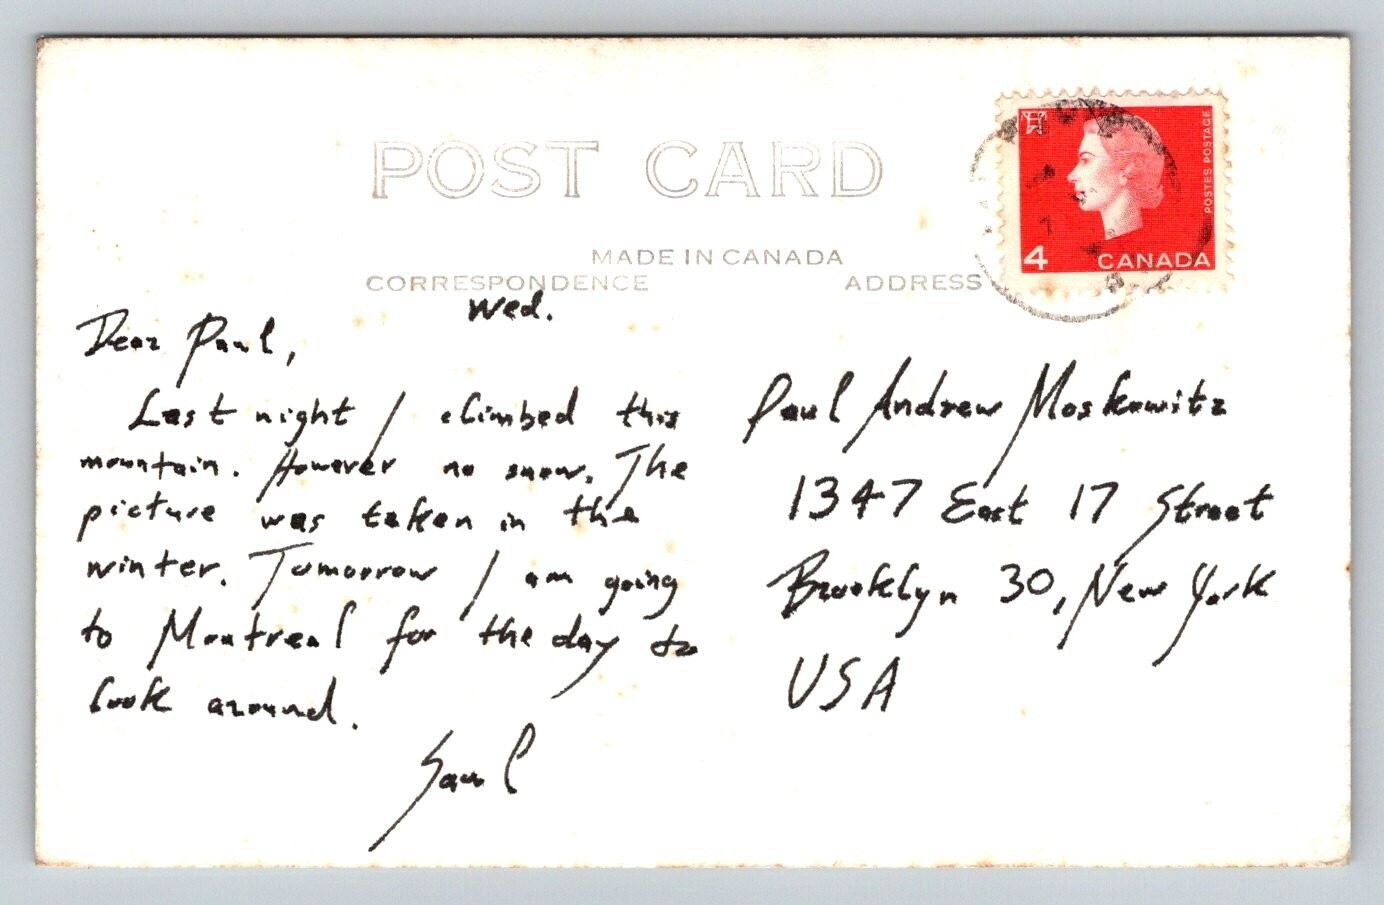 POST CARD
MADE IN CANADA
CORRESPONDENCE
ADDRESS
POSTES POSTAGE
4 CANADA
Wed.
Dear Paul,
Last night I climbed this
mountain. However no snow. The
picture was taken in the
winter. Tomorrow I am going
to Montreal for the day to
look around.
Saul
Paul Andrew Moskowitz
1347 East 17 Street
Brooklyn 30, New York
USA